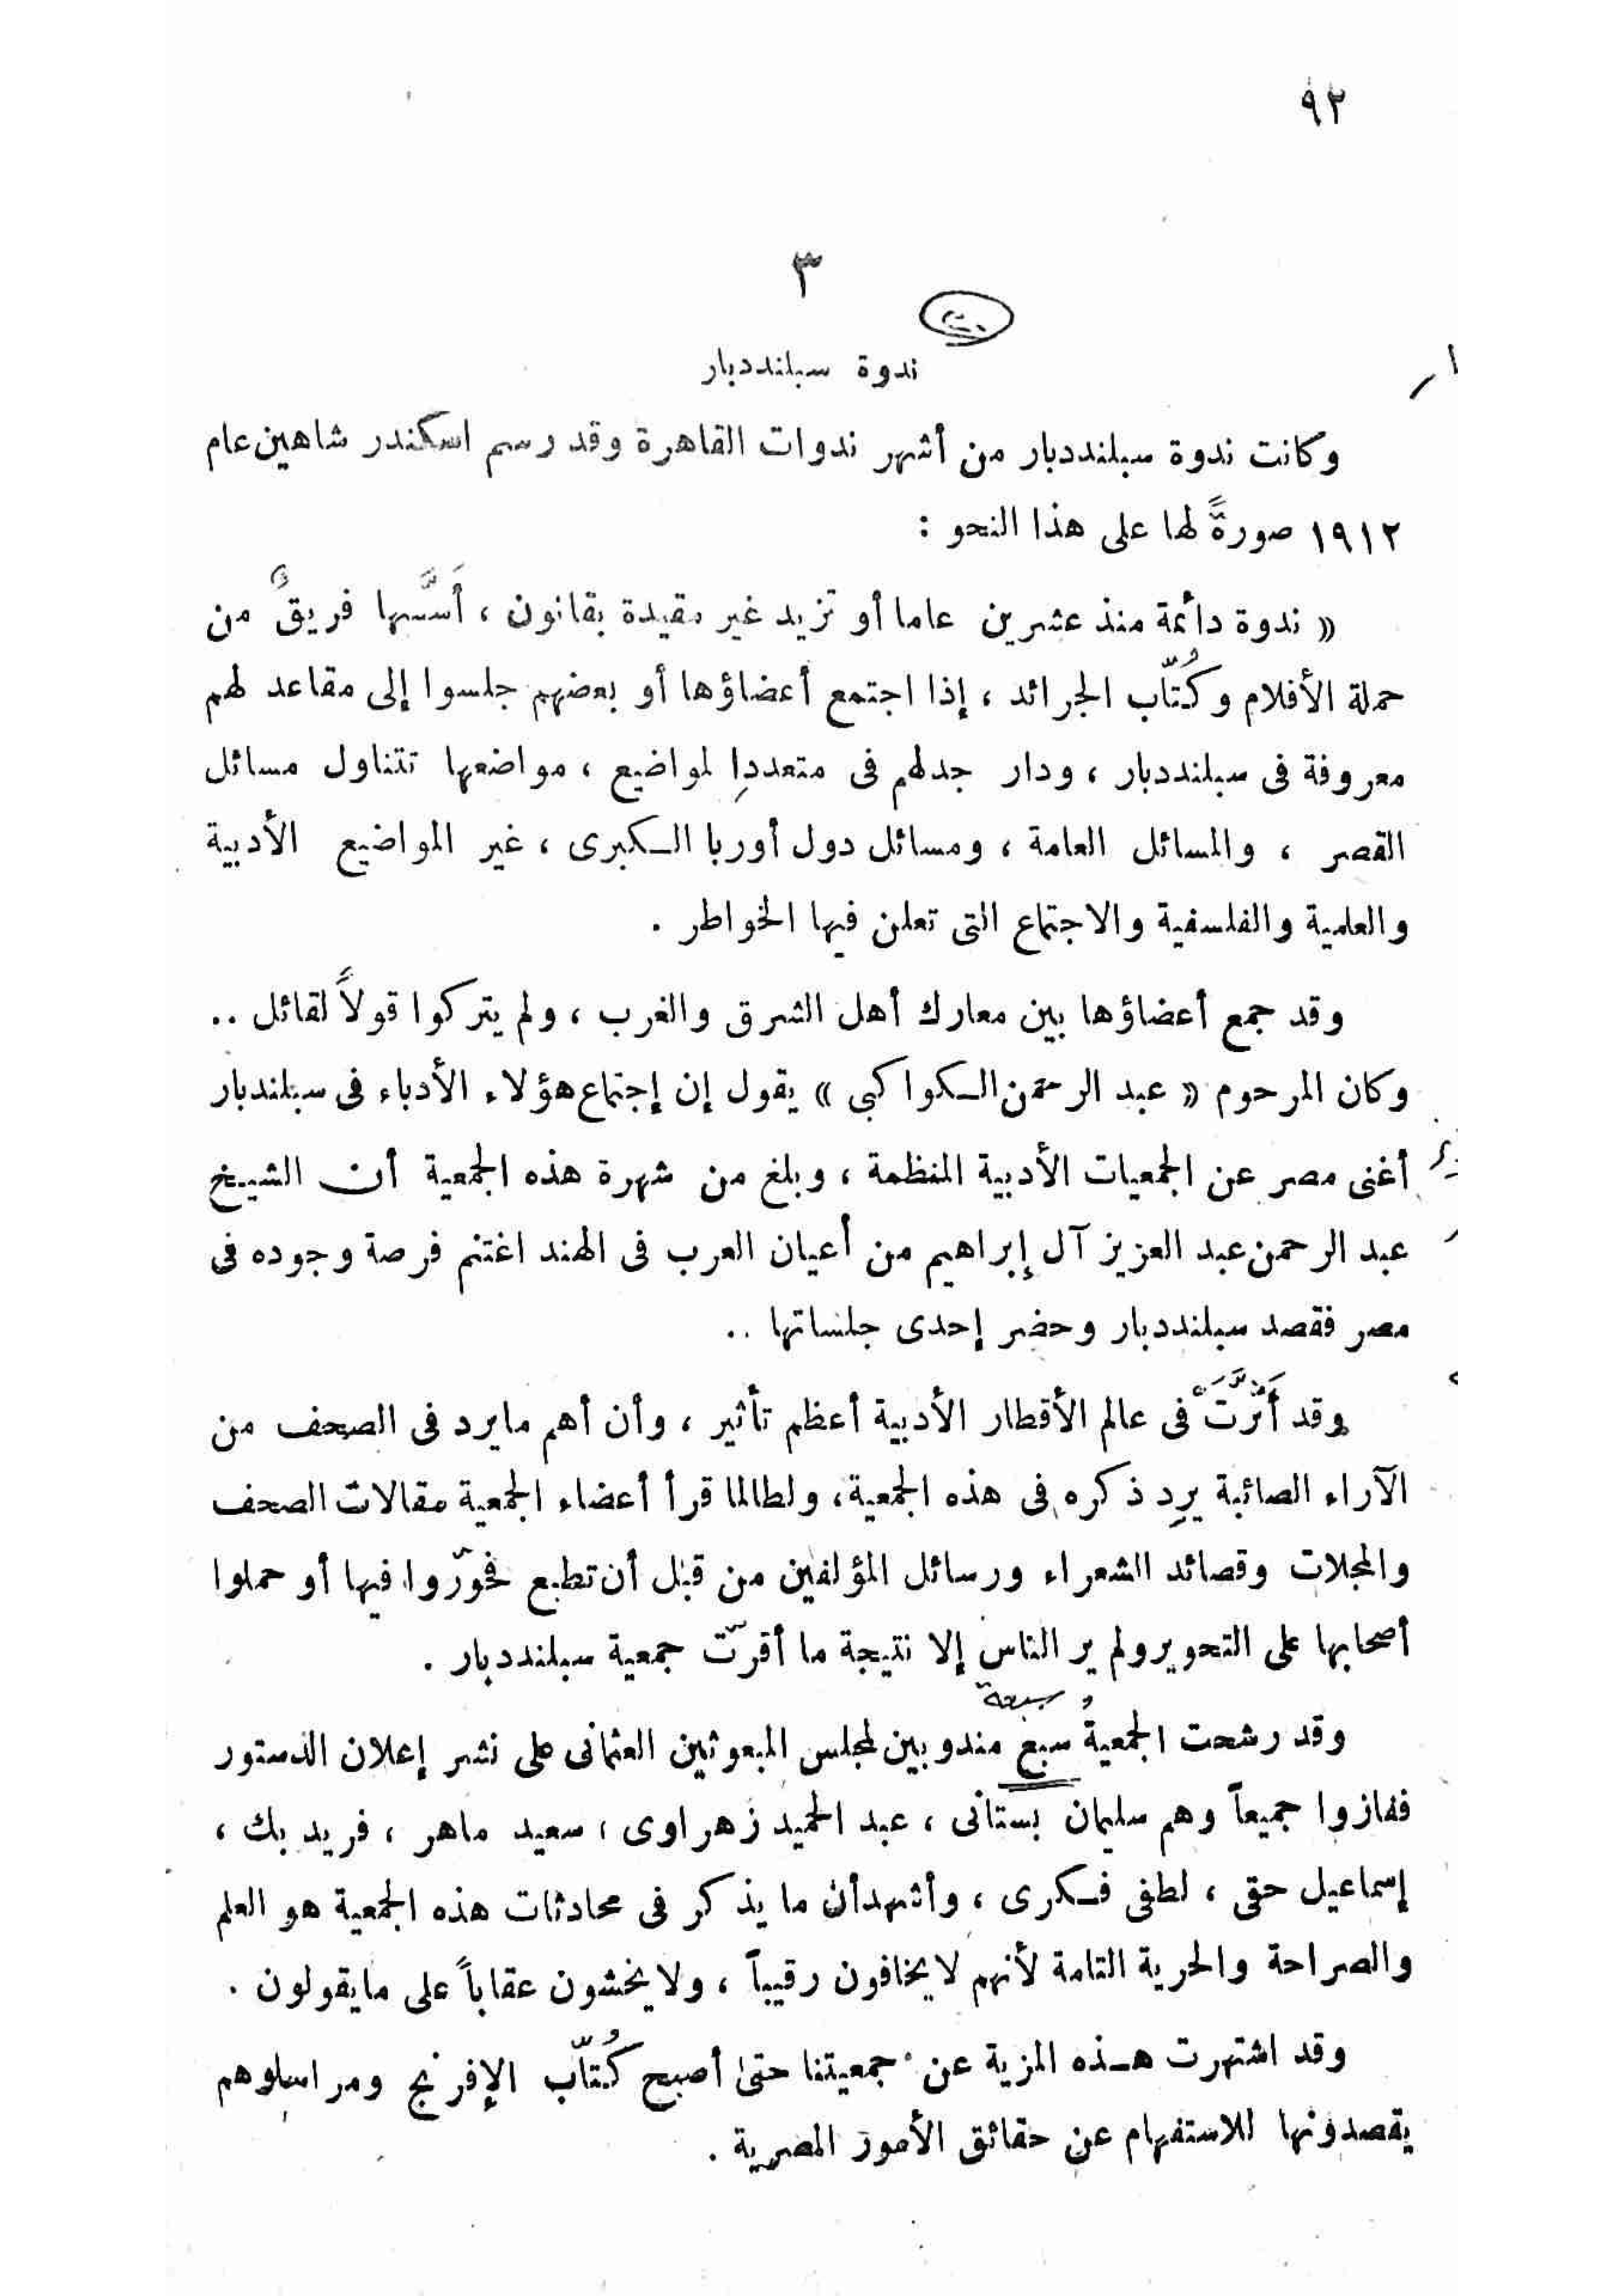 ٩٢
٣
ندوة سبلنددبار
وكانت ندوة سبلنددبار من أشهر ندوات القاهرة وقد رسم اسكندر شاهين عام
١٩١٢ صورةً لها على هذا النحو :
« ندوة دائمة منذ عشرين عاما أو تزيد غير مقيدة بقانون ، أَسَّسها فريقٌ من
حملة الأقلام وكُتّاب الجرائد ، إذا اجتمع أعضاؤها أو بعضهم جلسوا إلى مقاعد لهم
معروفة فى سبلنددبار ، ودار جدلهم فى متعددِ المواضيع ، مواضعها تتناول مسائل
القصر ، والمسائل العامة ، ومسائل دول أوربا الكبرى ، غير المواضيع الأدبية
والعلمية والفلسفية والاجتماع التى تعلن فيها الخواطر .
وقد جمع أعضاؤها بين معارك أهل الشرق والغرب ، ولم يتركوا قولاً لقائل ..
وكان المرحوم « عبد الرحمن الكواكبى » يقول إن إجتماع هؤلاء الأدباء فى سبلندبار
أغنى مصر عن الجمعيات الأدبية المنظمة ، وبلغ من شهرة هذه الجمعية أن الشيخ
عبد الرحمن عبد العزيز آل إبراهيم من أعيان العرب فى الهند اغتنم فرصة وجوده فى
مصر فقصد سبلنددبار وحضر إحدى جلساتها ..
وقد أَثَّرَتْ فى عالم الأقطار الأدبية أعظم تأثير ، وأن أهم مايرد فى الصحف من
الآراء الصائبة يرِد ذكره فى هذه الجمعية، ولطالما قرأ أعضاء الجمعية مقالات الصحف
والمجلات وقصائد الشعراء ورسائل المؤلفين من قبل أن تطبع فحوّروا فيها أو حملوا
أصحابها على التحوير ولم ير الناس إلا نتيجة ما أقرّت جمعية سبلنددبار .
سبعة
وقد رشحت الجمعيةُ سبع مندوبين لمجلس المبعوثين العثمانى على نشر إعلان الدستور
ففازوا جميعاً وهم سليمان بستانى ، عبد الحميد زهراوى ، سعيد ماهر ، فريد بك ،
إسماعيل حقى ، لطفى فكرى ، وأشهد أن ما يذكر فى محادثات هذه الجمعية هو العلم
والصراحة والحرية التامة لأنهم لا يخافون رقيباً ، ولا يخشون عقاباً على مايقولون .
وقد اشتهرت هذه المزية عن جمعيتنا حتى أصبح كُتّاب الإفرنج ومراسلوهم
يقصدونها للاستفهام عن حقائق الأمور المصرية .